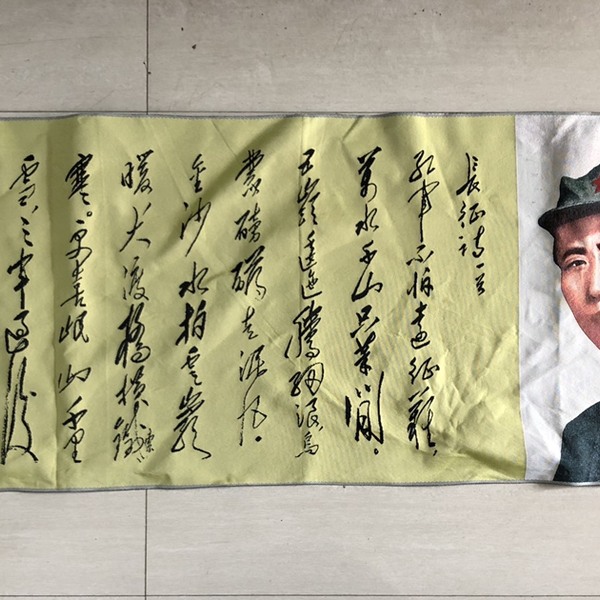 長征詩一首
紅軍不怕遠征難，
萬水千山只等閒。
五嶺逶迤騰細浪，烏
蒙磅礴走泥丸。
金沙水拍雲崖
暖，大渡橋橫鐵索
寒。更喜岷山千里
雪，三軍過後